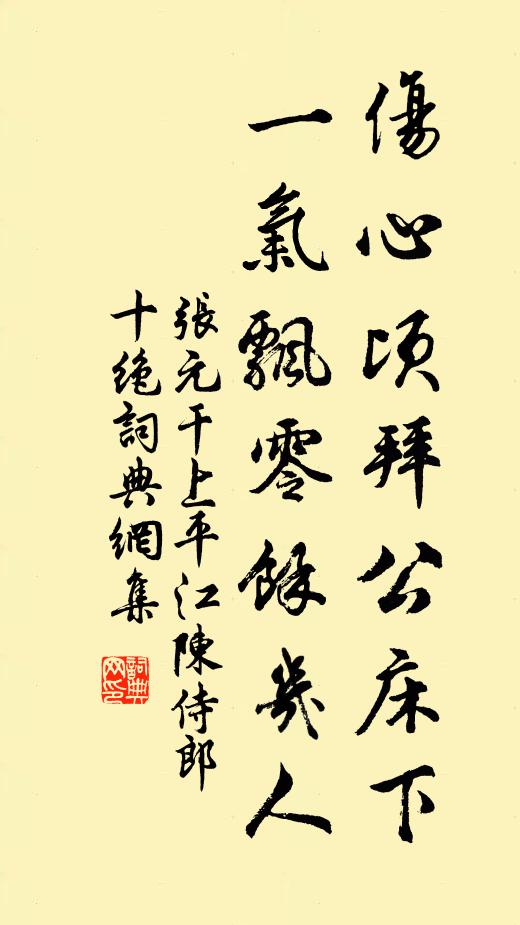 傷心頃拜公床下
一氣飄零餘幾人
張元干上平江陳侍郎
十絶詞典網集
詞典網印